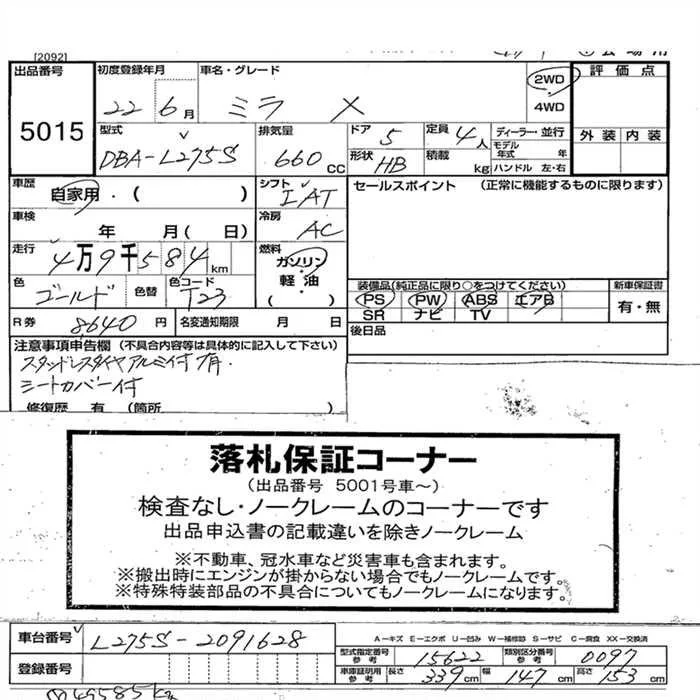 [2092]
出品番号 初度登録年月 車名・グレード 2WD 評価点
5015 22 6月 ミラ X 4WD
型式 排気量 ドア 定員 ディーラー・並行 外装 内装
DBA-L275S 660CC 5 4人 モデル年式 年
形状 HB 積載 kg ハンドル 左・右
車歴 自家用・( ) シフト IAT セールスポイント (正常に機能するものに限ります)
車検 年 月( 日) 冷房 AC
走行 4万9千584km 燃料 ガソリン 軽油 ( )
色 ゴールド 色替 色コード T23
装備品(純正品に限り○をつけてください) 新車保証書
PS PW ABS エアB 有・無
SR ナビ TV
R券 8640円 名変通知期限 月 日 後日品
注意事項申告欄 (不具合内容等は具体的に記入して下さい)
スタッドレスタイヤアルミ付有.
シートカバー付
修復歴 有 (箇所 )
落札保証コーナー
(出品番号 5001号車~)
検査なし・ノークレームのコーナーです
出品申込書の記載違いを除きノークレーム
※不動車、冠水車など災害車も含まれます。
※搬出時にエンジンが掛からない場合でもノークレームです。
※特殊特装部品の不具合についてもノークレームになります。
車台番号 L275S-2091628
A-キズ E-エクボ U-凹み W-補修跡 S-サビ C-腐食 XX-交換済
型式指定番号 参考 15622 類別区分番号 参考 0097
登録番号
車庫証明用 参考 長さ 339cm 幅 147cm 高さ 153cm
49585km